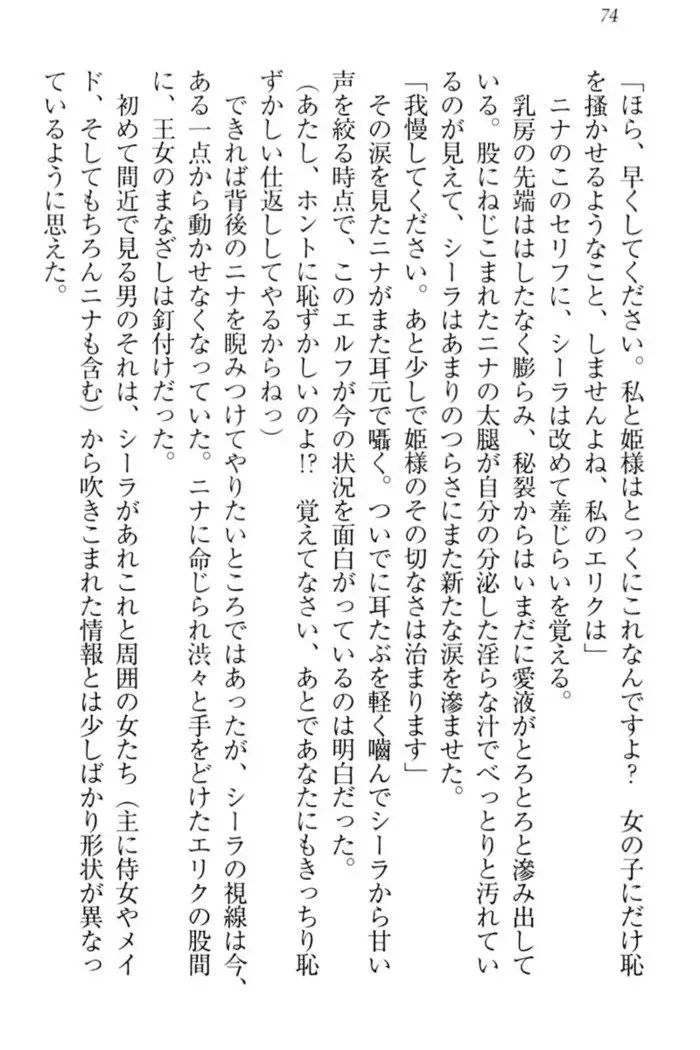 74
「ほら、早くしてください。私と姫様はとっくにこれなんですよ？　女の子にだけ恥
を掻かせるようなこと、しませんよね、私のエリクは」
ニナのこのセリフに、シーラは改めて羞じらいを覚える。
乳房の先端ははしたなく膨らみ、秘裂からはいまだに愛液がとろとろと滲み出して
いる。股にねじこまれたニナの太腿が自分の分泌した淫らな汁でべっとりと汚れてい
るのが見えて、シーラはあまりのつらさにまた新たな涙を滲ませた。
「我慢してください。あと少しで姫様のその切なさは治まります」
その涙を見たニナがまた耳元で囁く。ついでに耳たぶを軽く嚙んでシーラから甘い
声を絞る時点で、このエルフが今の状況を面白がっているのは明白だった。
（あたし、ホントに恥ずかしいのよ!?　覚えてなさい、あとであなたにもきっちり恥
ずかしい仕返ししてやるからねっ）
できれば背後のニナを睨みつけてやりたいところではあったが、シーラの視線は今、
ある一点から動かせなくなっていた。ニナに命じられ渋々と手をどけたエリクの股間
に、王女のまなざしは釘付けだった。
初めて間近で見る男のそれは、シーラがあれこれと周囲の女たち（主に侍女やメイ
ド、そしてもちろんニナも含む）から吹きこまれた情報とは少しばかり形状が異なっ
ているように思えた。